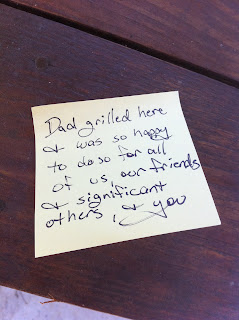 Dad grilled here
& was so happy
to do so for all
of us, our friends
& significant
others, & you